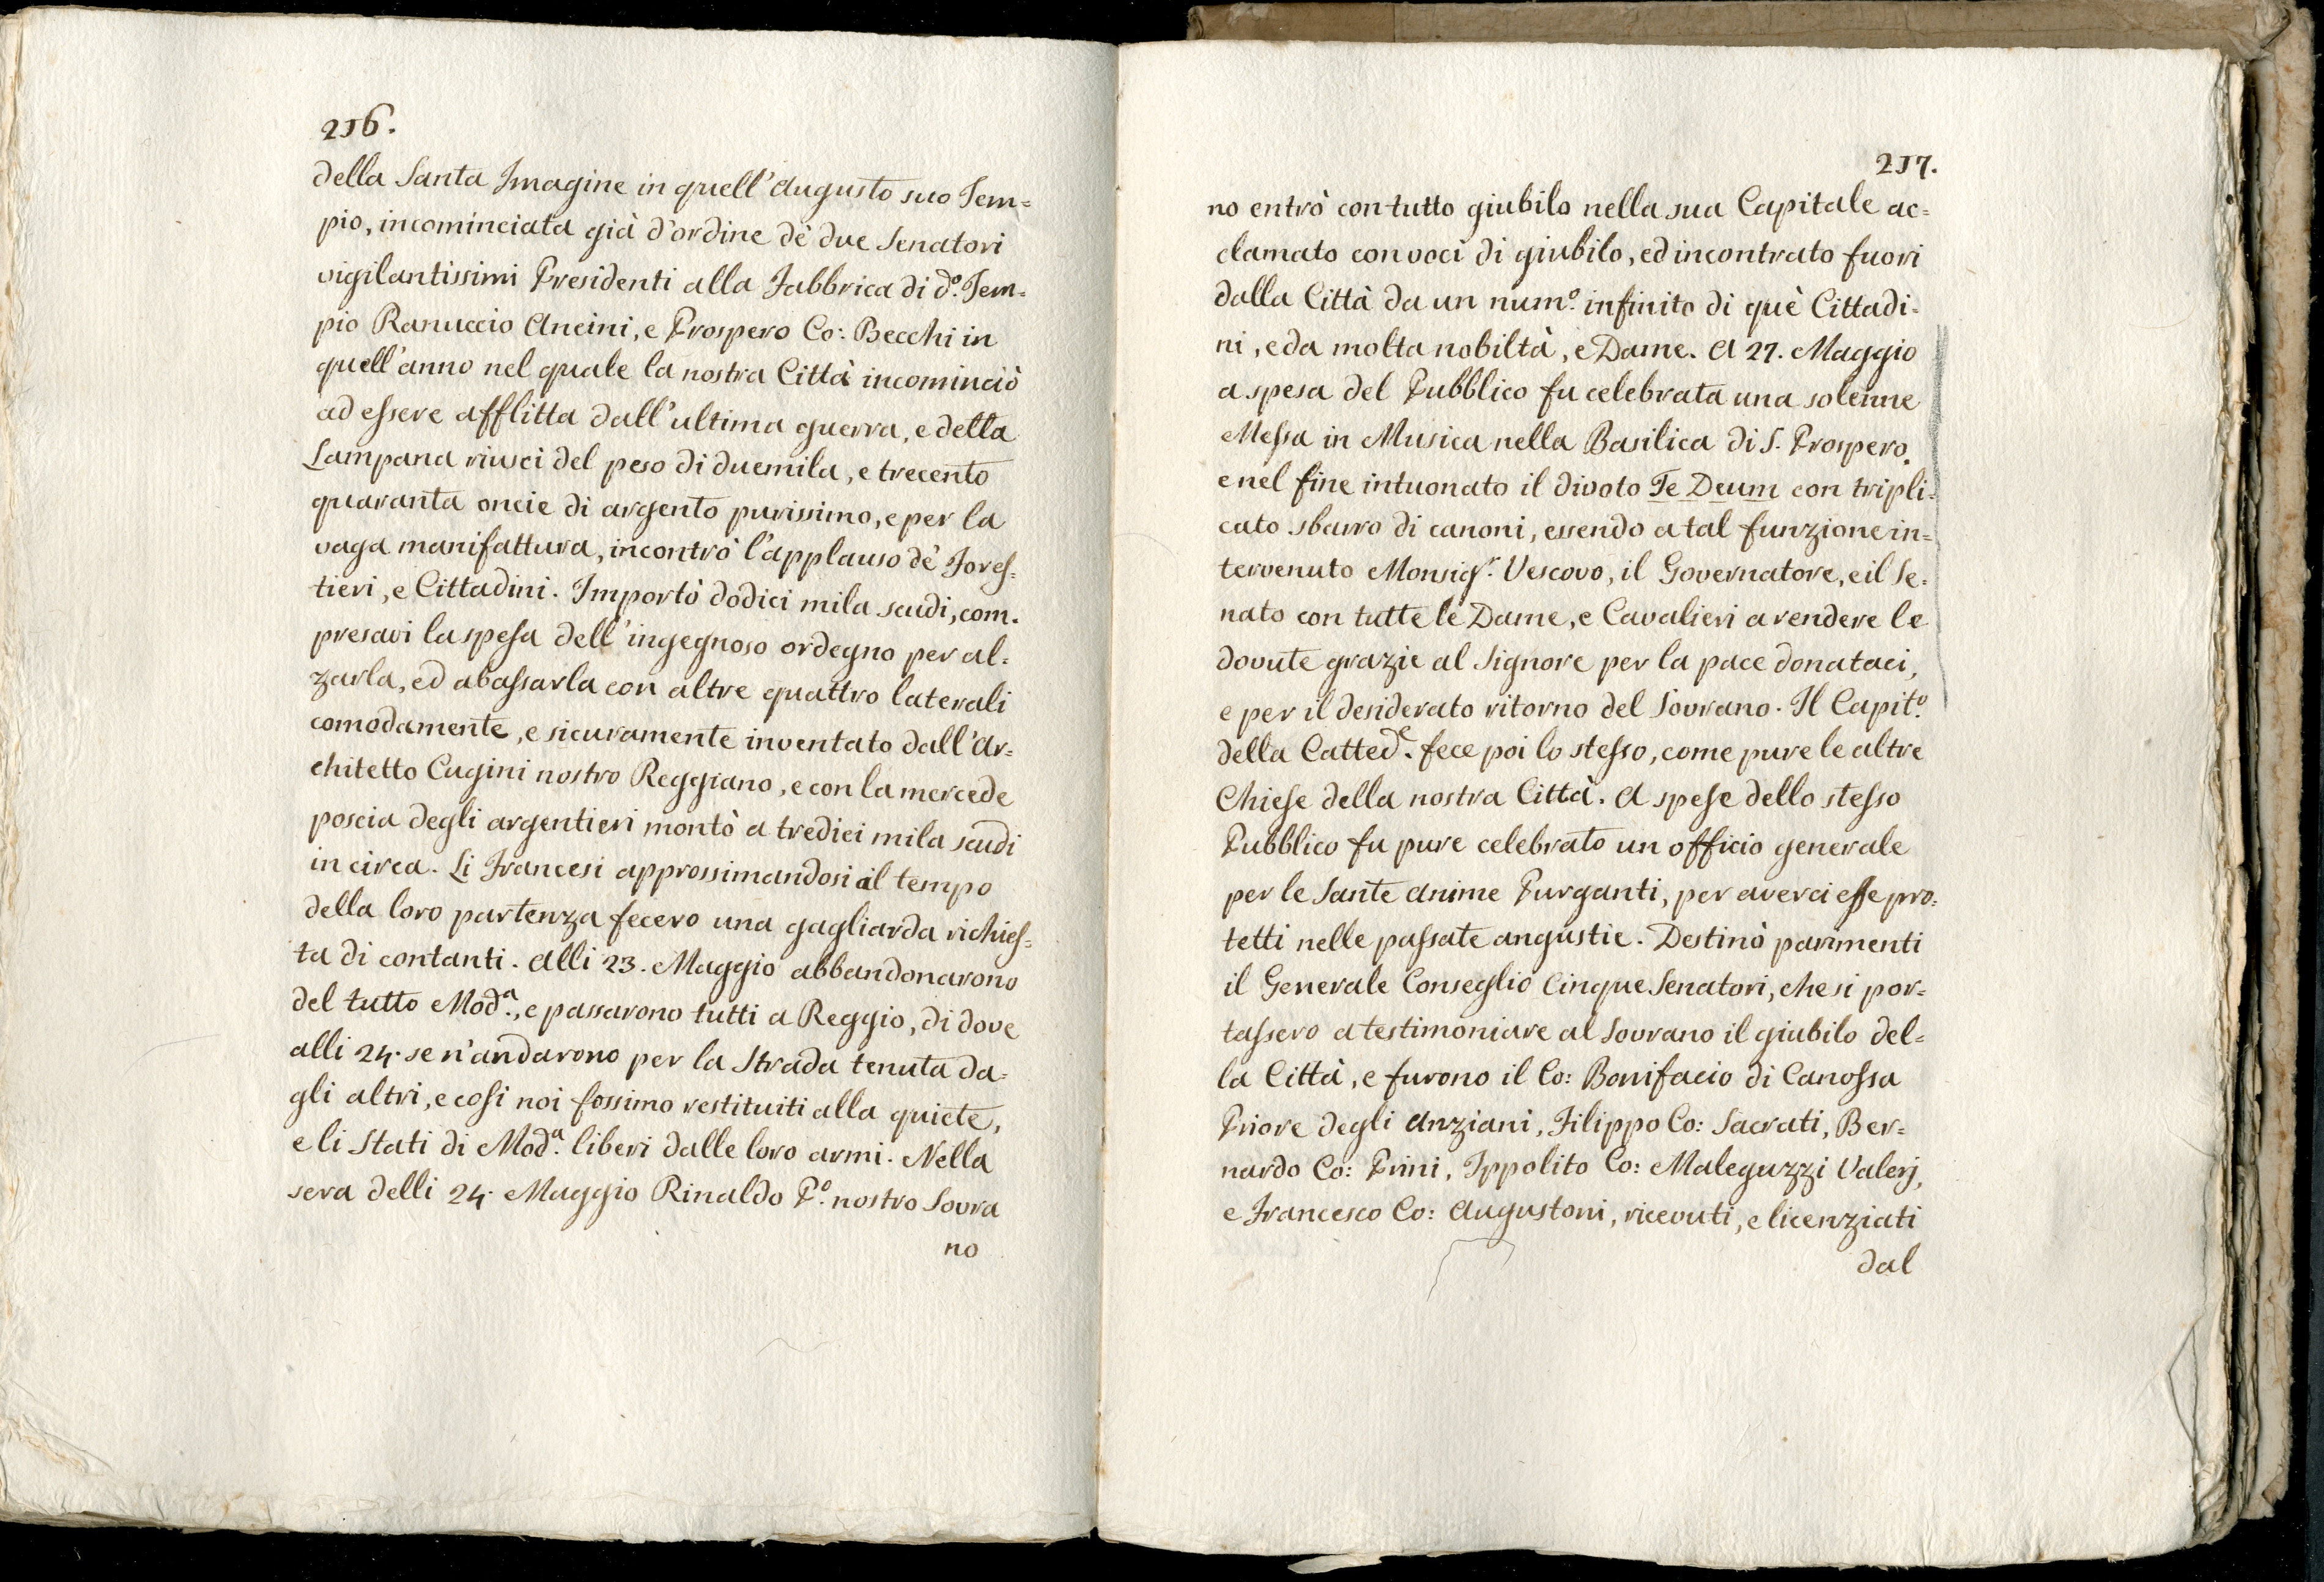 216.
della Santa Imagine in quell'Augusto suo Tem=
pio, incominciata già d'ordine dè due Senatori
vigilantissimi Presidenti alla Fabbrica di d.º Tem=
pio Ranuccio Ancini, e Prospero Co: Becchi in
quell'anno nel quale la nostra Città incominciò
ad essere afflitta dall'ultima guerra, e della
Lampana riusci del peso di duemila, e trecento
quaranta oncie di argento purissimo, e per la
vaga manifattura, incontrò l'applauso dè Fores=
tieri, e Cittadini. Importò dodici mila scudi, com=
presavi la spesa dell'ingegnoso ordegno per al=
zarla, ed abassarla con altre quattro laterali
comodamente, e sicuramente inventato dall'Ar=
chitetto Cugini nostro Reggiano, e con la mercede
poscia degli argentieri montò a tredici mila scudi
in circa. Li Francesi approssimandosi il tempo
della loro partenza fecero una gagliarda richies=
ta di contanti. Alli 23. Maggio abbandonarono
del tutto Mod.ª, e passarono tutti a Reggio, di dove
alli 24. se n'andarono per la Strada tenuta da=
gli altri, e cosi noi fossimo restituiti alla quiete,
e li Stati di Mod.ª liberi dalle loro armi. Nella
sera delli 24. Maggio Rinaldo P.º nostro Sovra
no
217.
no entrò con tutto giubilo nella sua Capitale ac=
clamato con voci di giubilo, ed incontrato fuori
dalla Città da un num.º infinito di què Cittadi=
ni, e da molta nobiltà, e Dame. A 27. Maggio
a spesa del Pubblico fu celebrata una solenne
Messa in Musica nella Basilica di S. Prospero.
e nel fine intuonato il divoto Te Deum con tripli=
cato sbarro di canoni, essendo a tal funzione in=
tervenuto Monsig.r Vescovo, il Governatore, e il Se=
nato con tutte le Dame, e Cavalieri a rendere le
dovute grazie al Signore per la pace donataci,
e per il desiderato ritorno del Sovrano. Il Capit.º
della Catted.e fece poi lo stesso, come pure le altre
Chiese della nostra Città. A spese dello stesso
Pubblico fu pure celebrato un officio generale
per le Sante Anime Purganti, per averci esse pro=
tetti nelle passate angustie. Destinò parimenti
il Generale Conseglio Cinque Senatori, che si por=
tassero a testimoniare al Sovrano il giubilo del=
la Città, e furono il Co: Bonifacio di Canossa
Priore degli Anziani, Filippo Co: Sacrati, Ber=
nardo Co: Prini, Ippolito Co: Maleguzzi Valerj,
e Francesco Co: Augustoni, ricevuti, e licenziati
dal